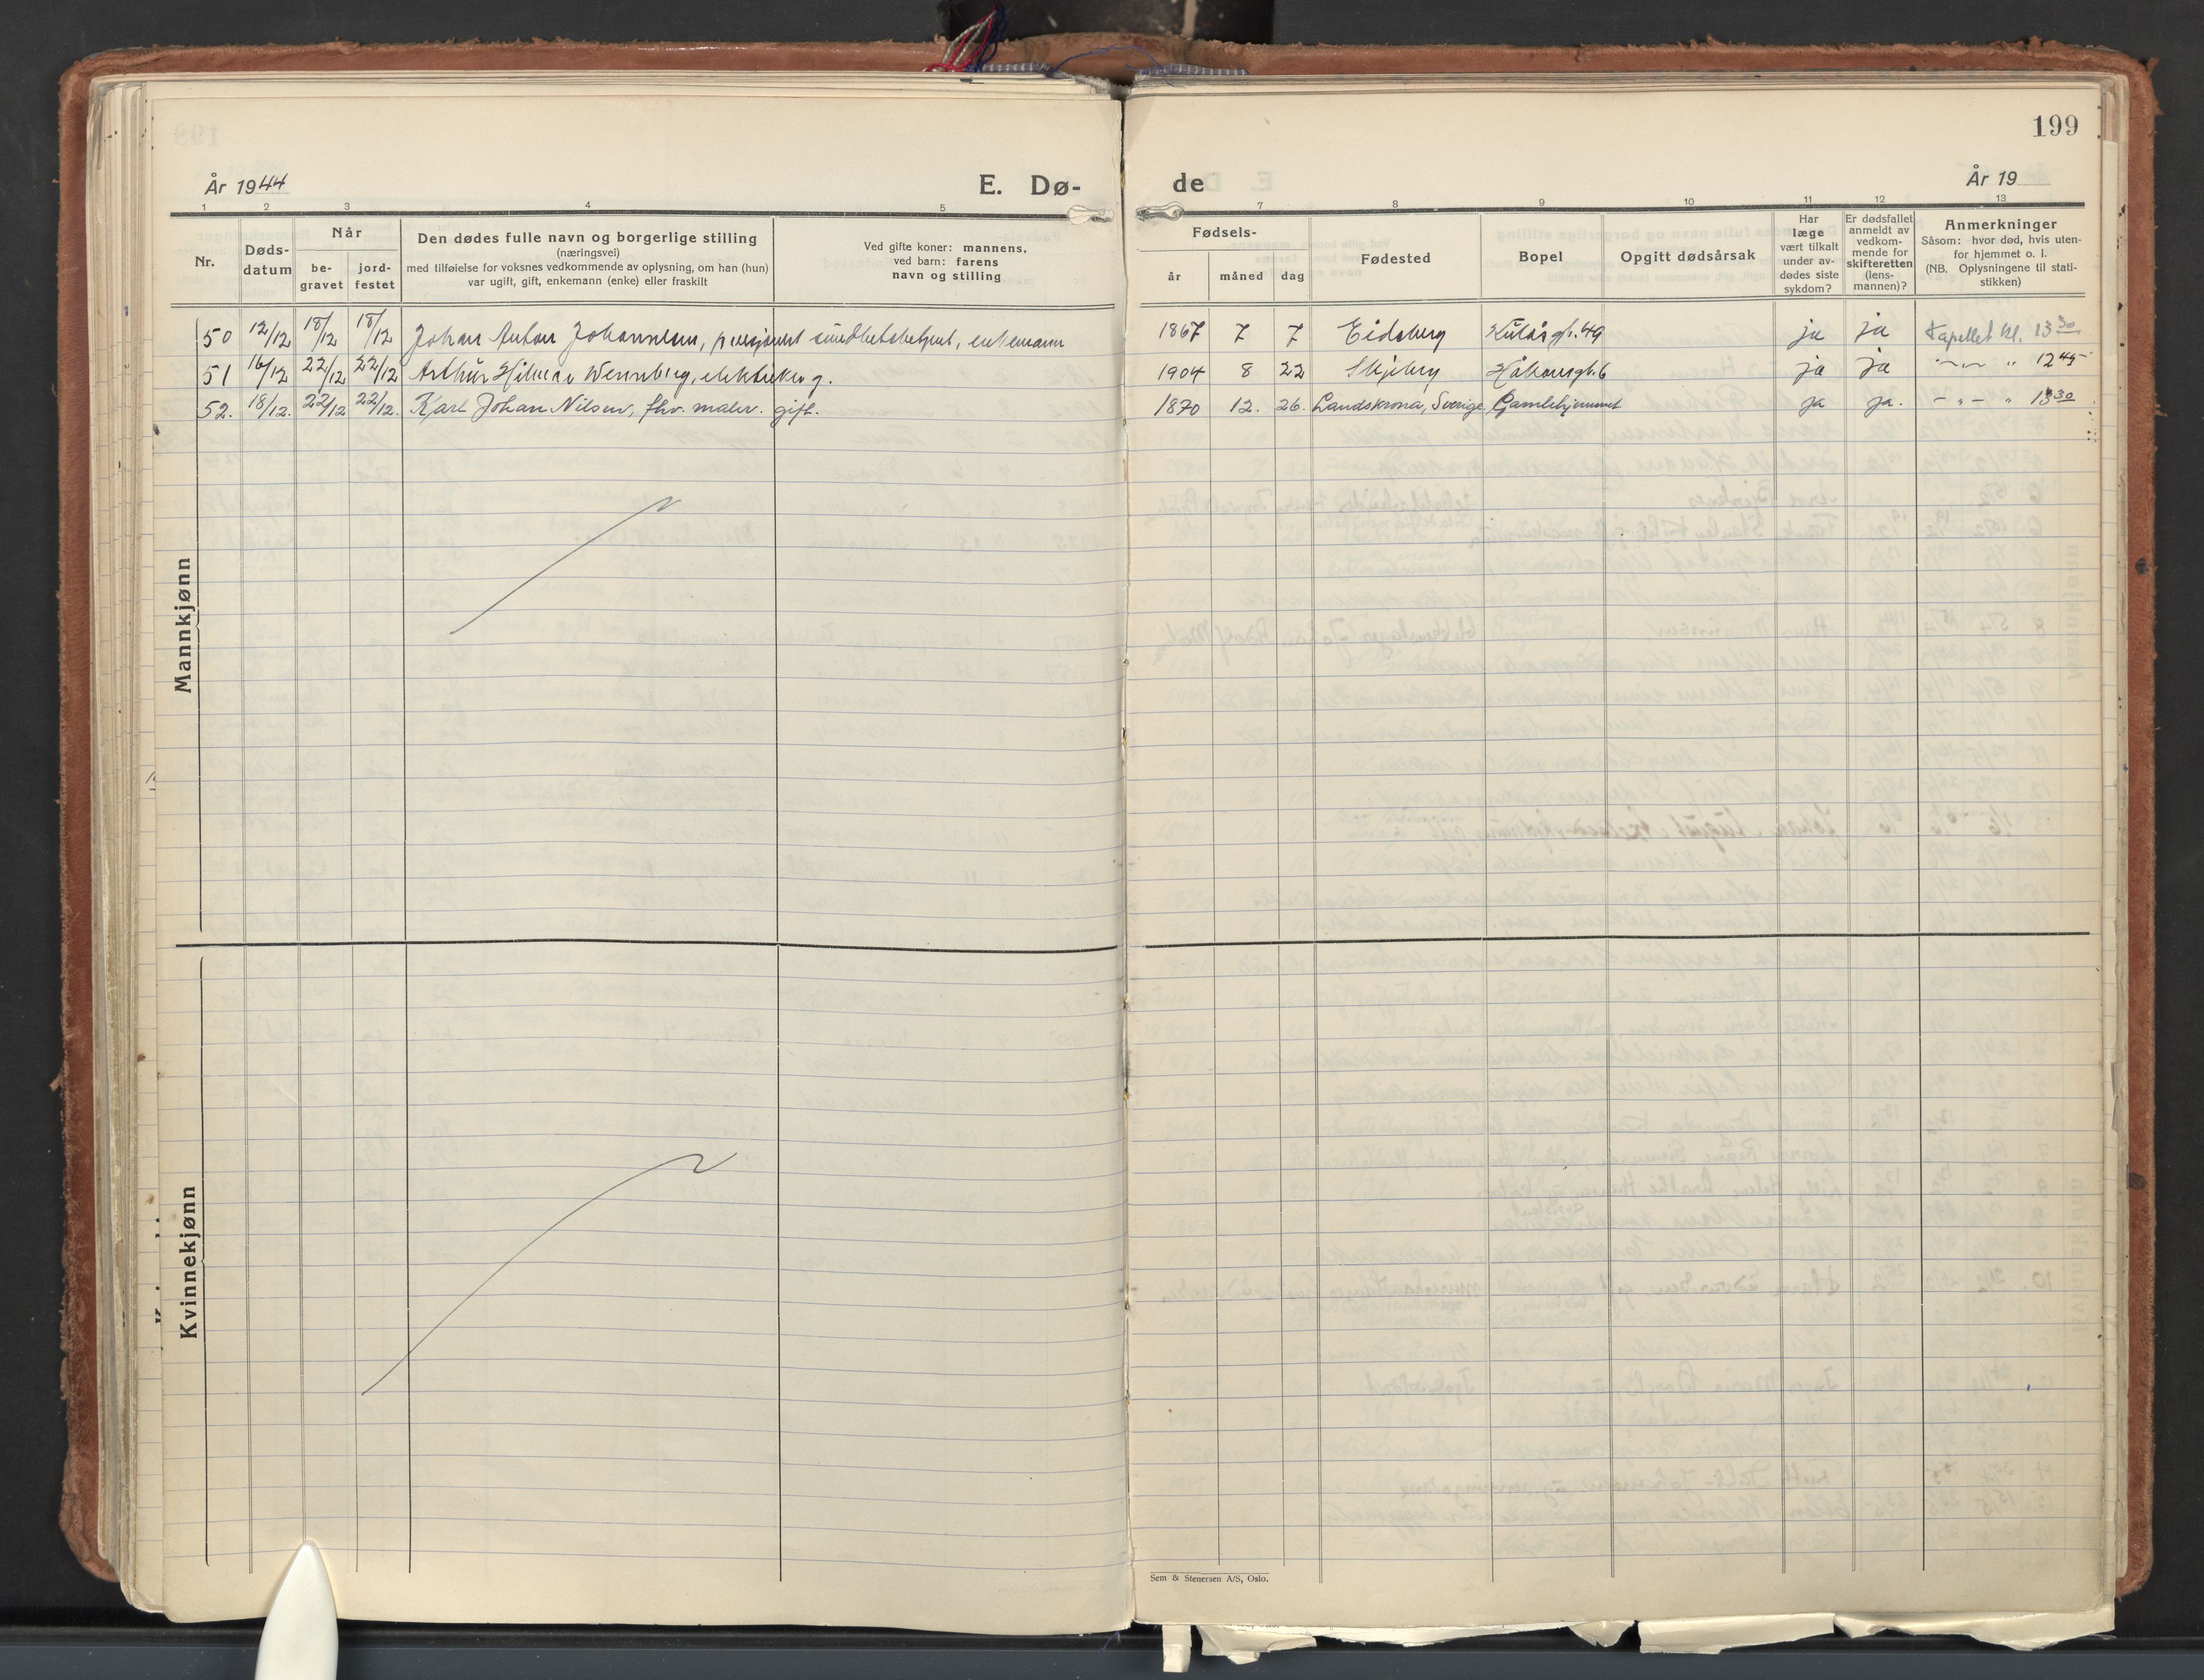 199
År 1944
E. Dø-
de
År 19
1 2 3 4 5 7 8 9 10 11 12 13
Nr.
Døds-
datum
Når
be-
gravet
jord-
festet
Den dødes fulle navn og borgerlige stilling
(næringsvei)
med tilføielse for voksnes vedkommende av oplysning, om han (hun)
var ugift, gift, enkemann (enke) eller fraskilt
Ved gifte koner: mannens,
ved barn: farens
navn og stilling
Fødsels-
år
måned
dag
Fødested
Bopel
Opgitt dødsårsak
Har
læge
vært tilkalt
under av-
dødes siste
sykdom?
Er dødsfallet
anmeldt av
vedkom-
mende for
skifteretten
(lens-
mannen)?
Anmerkninger
Såsom: hvor død, hvis uten-
for hjemmet o. l.
(NB. Oplysningene til stati-
stikken)
50 12/12 18/12 18/12 Johan Anton Johannesen, enkemann 1867 7 7 Eidsberg ja ja Kapellet kl. 13 30
51 16/12 22/12 22/12 Arthur Hilmar Wennberg, elektriker g. 1904 8 22 Skjeberg Håkonsgt. 6 ja ja -"- " 12 45
52. 18/12. 22/12 22/12. Karl Johan Nilsen, fhv. maler. gift. 1870 12. 26. Landskrona, Sverige Gamlehjemmet ja ja. - " - " 13 30
Mannkjønn
Kvinnekjønn
Sem & Stenersen A/S, Oslo.